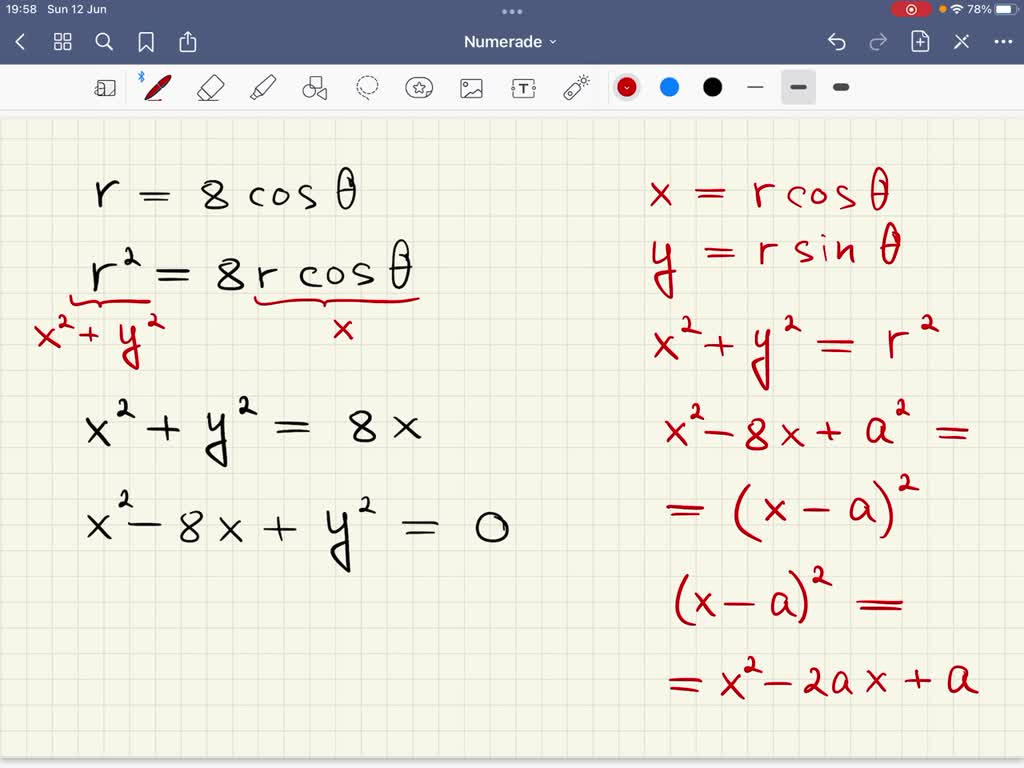 19:58 Sun 12 Jun
78%
Numerade
T
r = 8 cos θ
r² = 8r cos θ
x² + y²
x
x² + y² = 8x
x² − 8x + y² = 0
x = r cos θ
y = r sin θ
x² + y² = r²
x² − 8x + a² =
= (x − a)²
(x − a)² =
= x² − 2ax + a